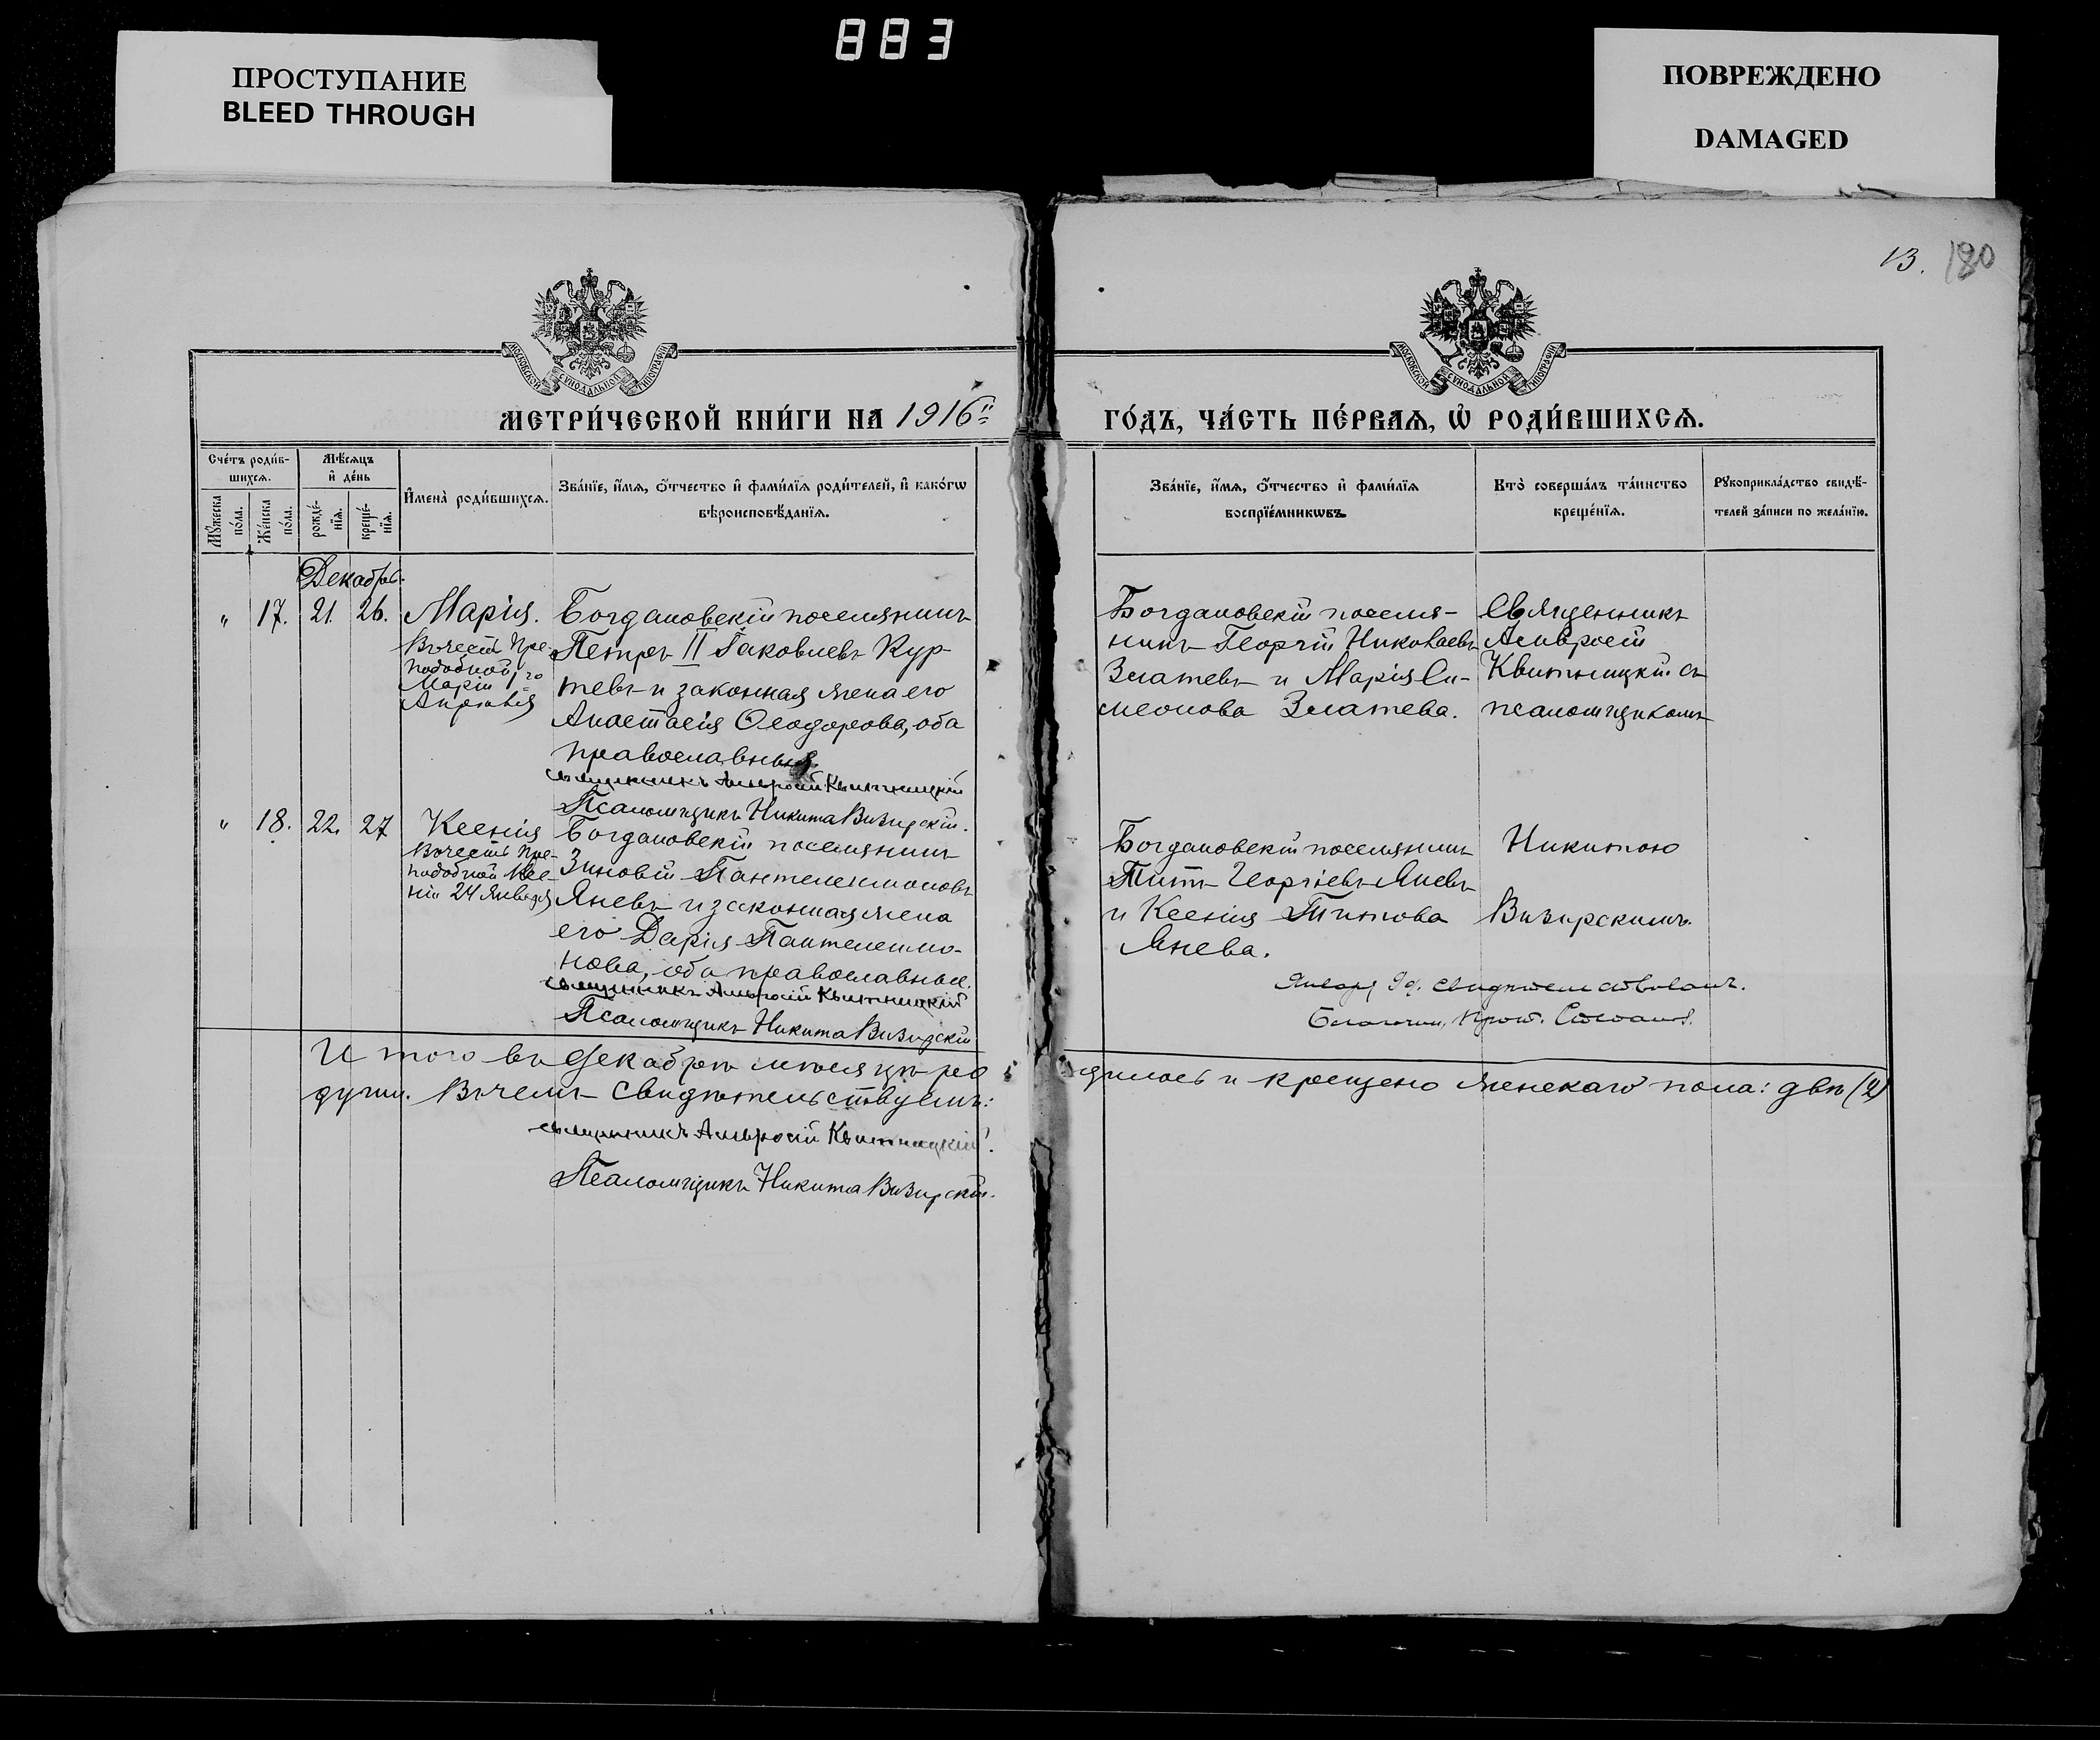 883
ПРОСТУПАНИЕ
BLEED THROUGH
ПОВРЕЖДЕНО
DAMAGED
13. 180
МОСКОВСКОЙ СѴНОДАЛЬНОЙ ТИПОГРАФІИ
МОСКОВСКОЙ СѴНОДАЛЬНОЙ ТИПОГРАФІИ
МЕТРИ́ЧЕСКОЙ КНИ́ГИ НА 1916й
ГО́ДЪ, ЧА́СТЬ ПЕ́РВАѦ, Ѡ҆ РОДИ́ВШИХСѦ.
Сче́тъ роди́в-
шихсѧ.
Мꙋ́жеска по́ла.
Же́нска по́ла.
Мѣ́сѧцъ
и҆ де́нь
рожде́-
нїѧ.
креще́-
нїѧ.
И҆мена̀ роди́вшихсѧ.
Зва́нїе, и҆́мѧ, ѻ҆́тчество и҆ фами́лїѧ роди́телей, и҆ како́гѡ
вѣроисповѣ́данїѧ.
Зва́нїе, и҆́мѧ, ѻ҆́тчество и҆ фами́лїѧ
воспрїе́мникѡвъ.
Кто̀ соверша́лъ та́инство
креще́нїѧ.
Рꙋкоприкла́дство свидѣ́-
телей за́писи по жела́нїю.
Декабрь.
" 17. 21. 26. Марія.
Въ честь Пре-
подобной
Маріи 1го
Апрѣля
Богдановскій поселянинъ
Петръ II Іаковлевъ Кур-
тевъ и законная жена его
Анастасія Ѳеодорова, оба
православные
Священникъ Амвросій Квитницкій
Псаломщикъ Никита Визирскій.
Богдановскій поселя-
нинъ Георгій Николаевъ
Златевъ и Марія Си-
меонова Златева.
Священникъ
Амвросій
Квитницкій съ
псаломщикомъ
" 18. 22. 27 Ксенія
Въ честь Пре-
подобной Ксе-
ніи 24 Января
Богдановскій поселянинъ
Зиновій Пантелеимоновъ
Яневъ и законная жена
его Дарія Пантелеимо-
нова, оба православные.
Священникъ Амвросій Квитницкій
Псаломщикъ Никита Визирскій
Богдановскій поселянинъ
Титъ Георгіевъ Яневъ
и Ксенія Титова
Янева.
Никитою
Визирскимъ.
Января 9 д. свидѣтельствовалъ.
Благочин. Прот.
Итого въ Декабрѣ мѣсяцѣ ро
дилось и крещено женскаго пола: двѣ (2)
души. Въ чемъ свидѣтельствуемъ:
Священникъ Амвросій Квитницкій.
Псаломщикъ Никита Визирскій.